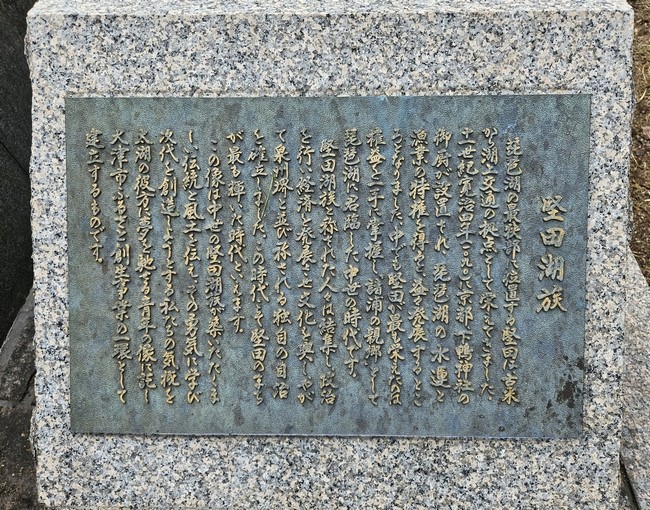 堅田湖族
琵琶湖の最狭部に位置する堅田は、古来
から湖上交通の拠点として栄えてきました。
十一世紀寛治四年(一〇九〇)に京都下鴨神社の
御厨が設置され、琵琶湖の水運と
漁業の特権を得ると、益々発展するところ
となりました。中でも堅田が最も栄えたのは
権益を一手に掌握し諸浦の親郷として
琵琶湖に君臨した中世の時代です。
堅田湖族と称された人々は結集し政治
を行い経済を発展させ文化を興しやが
て泉州堺と並び称される独自の自治
を確立しました。この時代こそ堅田のまち
が最も輝いた時代といえます。
この像は中世の堅田湖族が築いたたくま
しい伝統と風土を伝え、その勇気に学び
次代を創造しようとする私たちの気概を
太湖の彼方に夢を馳せる青年の像に託し
大津市ふるさと創生事業の一環として
建立するものです。